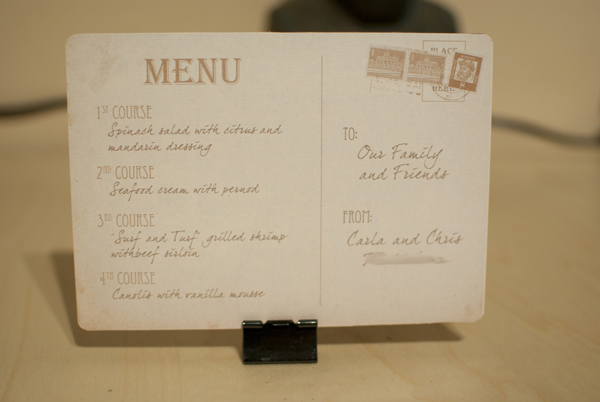 MENU
1ST COURSE
Spinach salad with citrus and
mandarin dressing
2ND COURSE
Seafood cream with pernod
3RD COURSE
"Surf and Turf" grilled shrimp
withbeef sirloin
4TH COURSE
Canolis with vanilla mousse
PLACE
HERE
TO:
Our Family
and Friends
FROM:
Carla and Chris